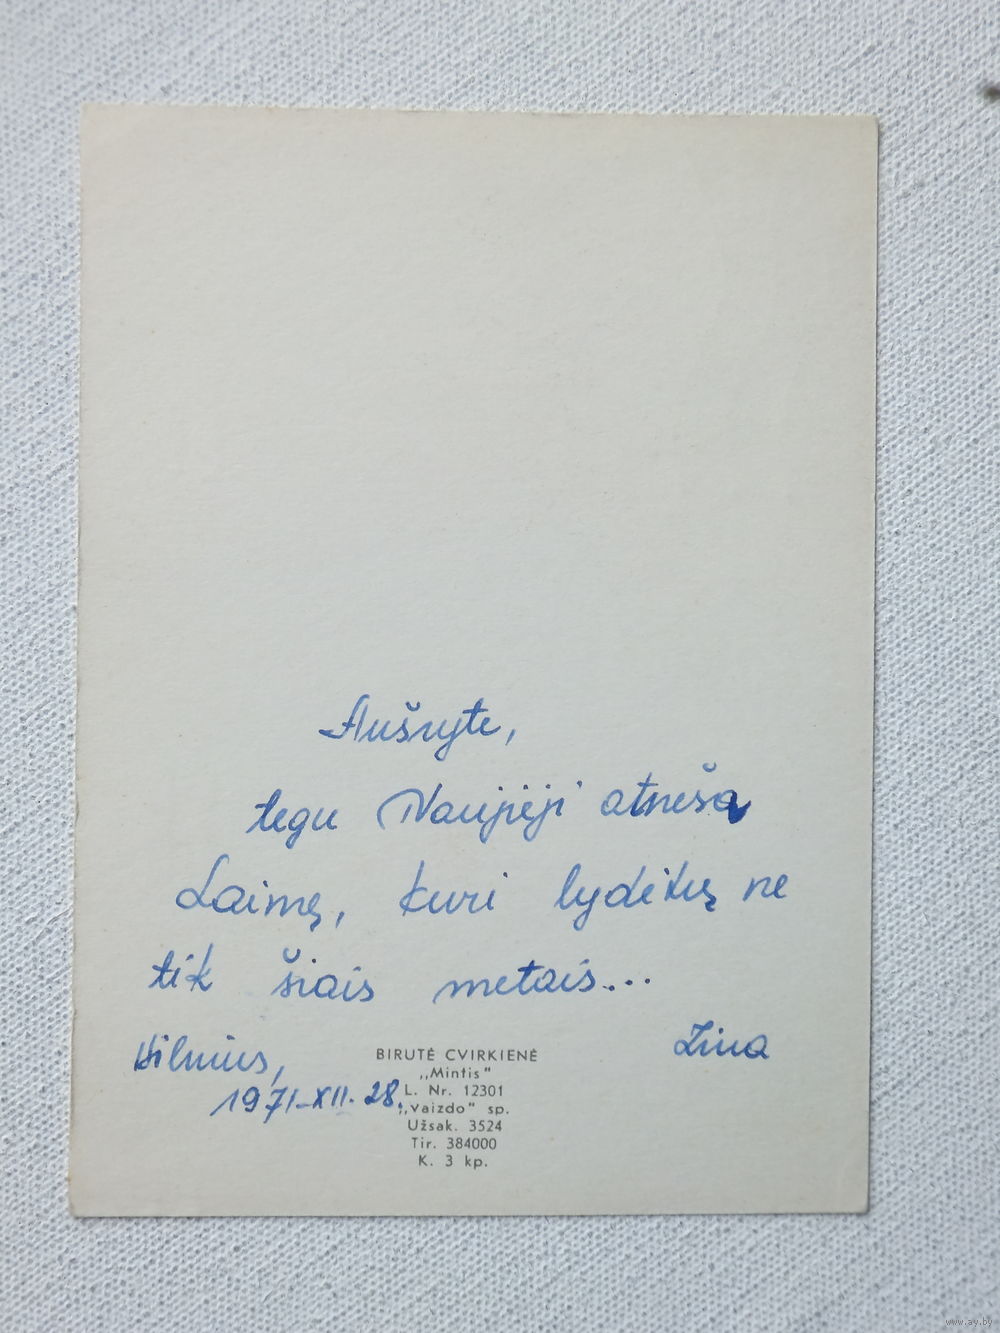 Aušryte,
tegu Naujieji atneša
Laimę, kuri lydėtų ne
tik šiais metais...
Vilnius,
1971-XII-28.
Zina
BIRUTĖ CVIRKIENĖ
„Mintis"
L. Nr. 12301
„Vaizdo" sp.
Užsak. 3524
Tir. 384000
K. 3 kp.
www.ay.by